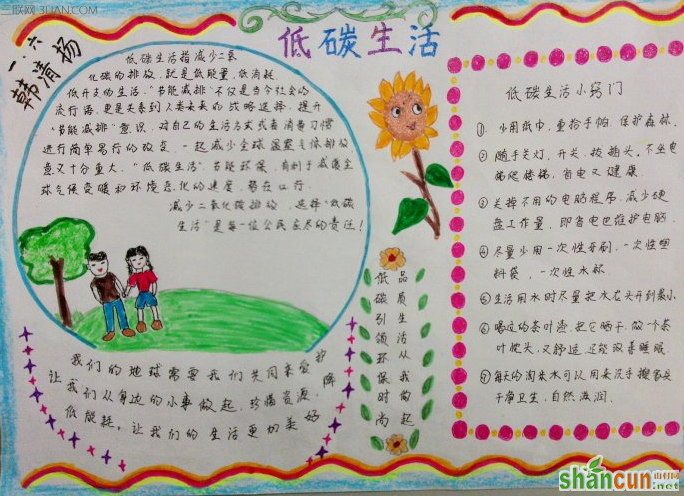 三联网 3LIAN.COM
一.六
韩清扬
低碳生活
低碳生活指减少二氧
化碳的排放,就是低能量,低消耗
低开支的生活.“节能减排”不仅是当今社会的
流行语,更是关系到人类未来的战略选择.提升
“节能减排”意识,对自己的生活方式或者消费习惯
进行简单易行的改变.一起减少全球温室气体排放,
意义十分重大.“低碳生活”节能环保,有利于减缓全
球气候变暖和环境恶化的速度,势在必行.
减少二氧化碳排放,选择“低碳
生活”是每一位公民应尽的责任!
我们的地球需要我们共同来爱护
让我们从身边的小事做起.珍惜资源.降
低能耗,让我们的生活更加美好
品质生活从我做起
低碳引领环保时尚
低碳生活小窍门
① 少用纸巾,重拾手帕,保护森林.
② 随手关灯,开关,拔插头,不坐电
梯爬楼梯,省电又健康
③ 关掉不用的电脑程序,减少硬
盘工作量,即省电也维护电脑.
④ 尽量少用一次性牙刷,一次性塑
料袋,一次性水杯.
⑤ 生活用水时尽量把水龙头开到最小
⑥ 喝过的茶叶渣,把它晒干,做一个茶
叶枕头,又舒适,还能改善睡眠.
⑦ 每天的淘米水可以用来洗手擦家具
干净卫生,自然滋润.
山村网
shancun.net